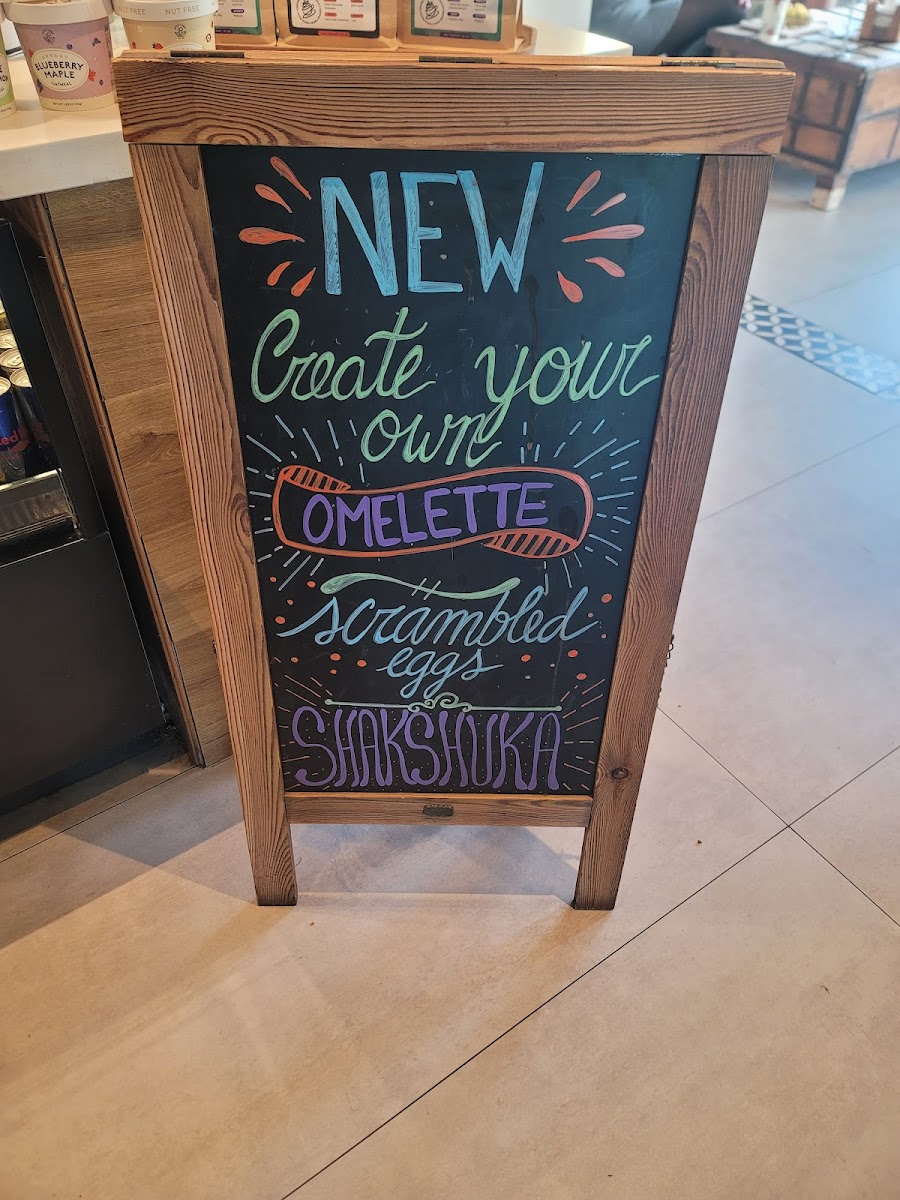 NUT FREE
NUT FREE
BLUEBERRY
MAPLE
OATMEAL
NEW
Create your
own
OMELETTE
scrambled
eggs
SHAKSHUKA